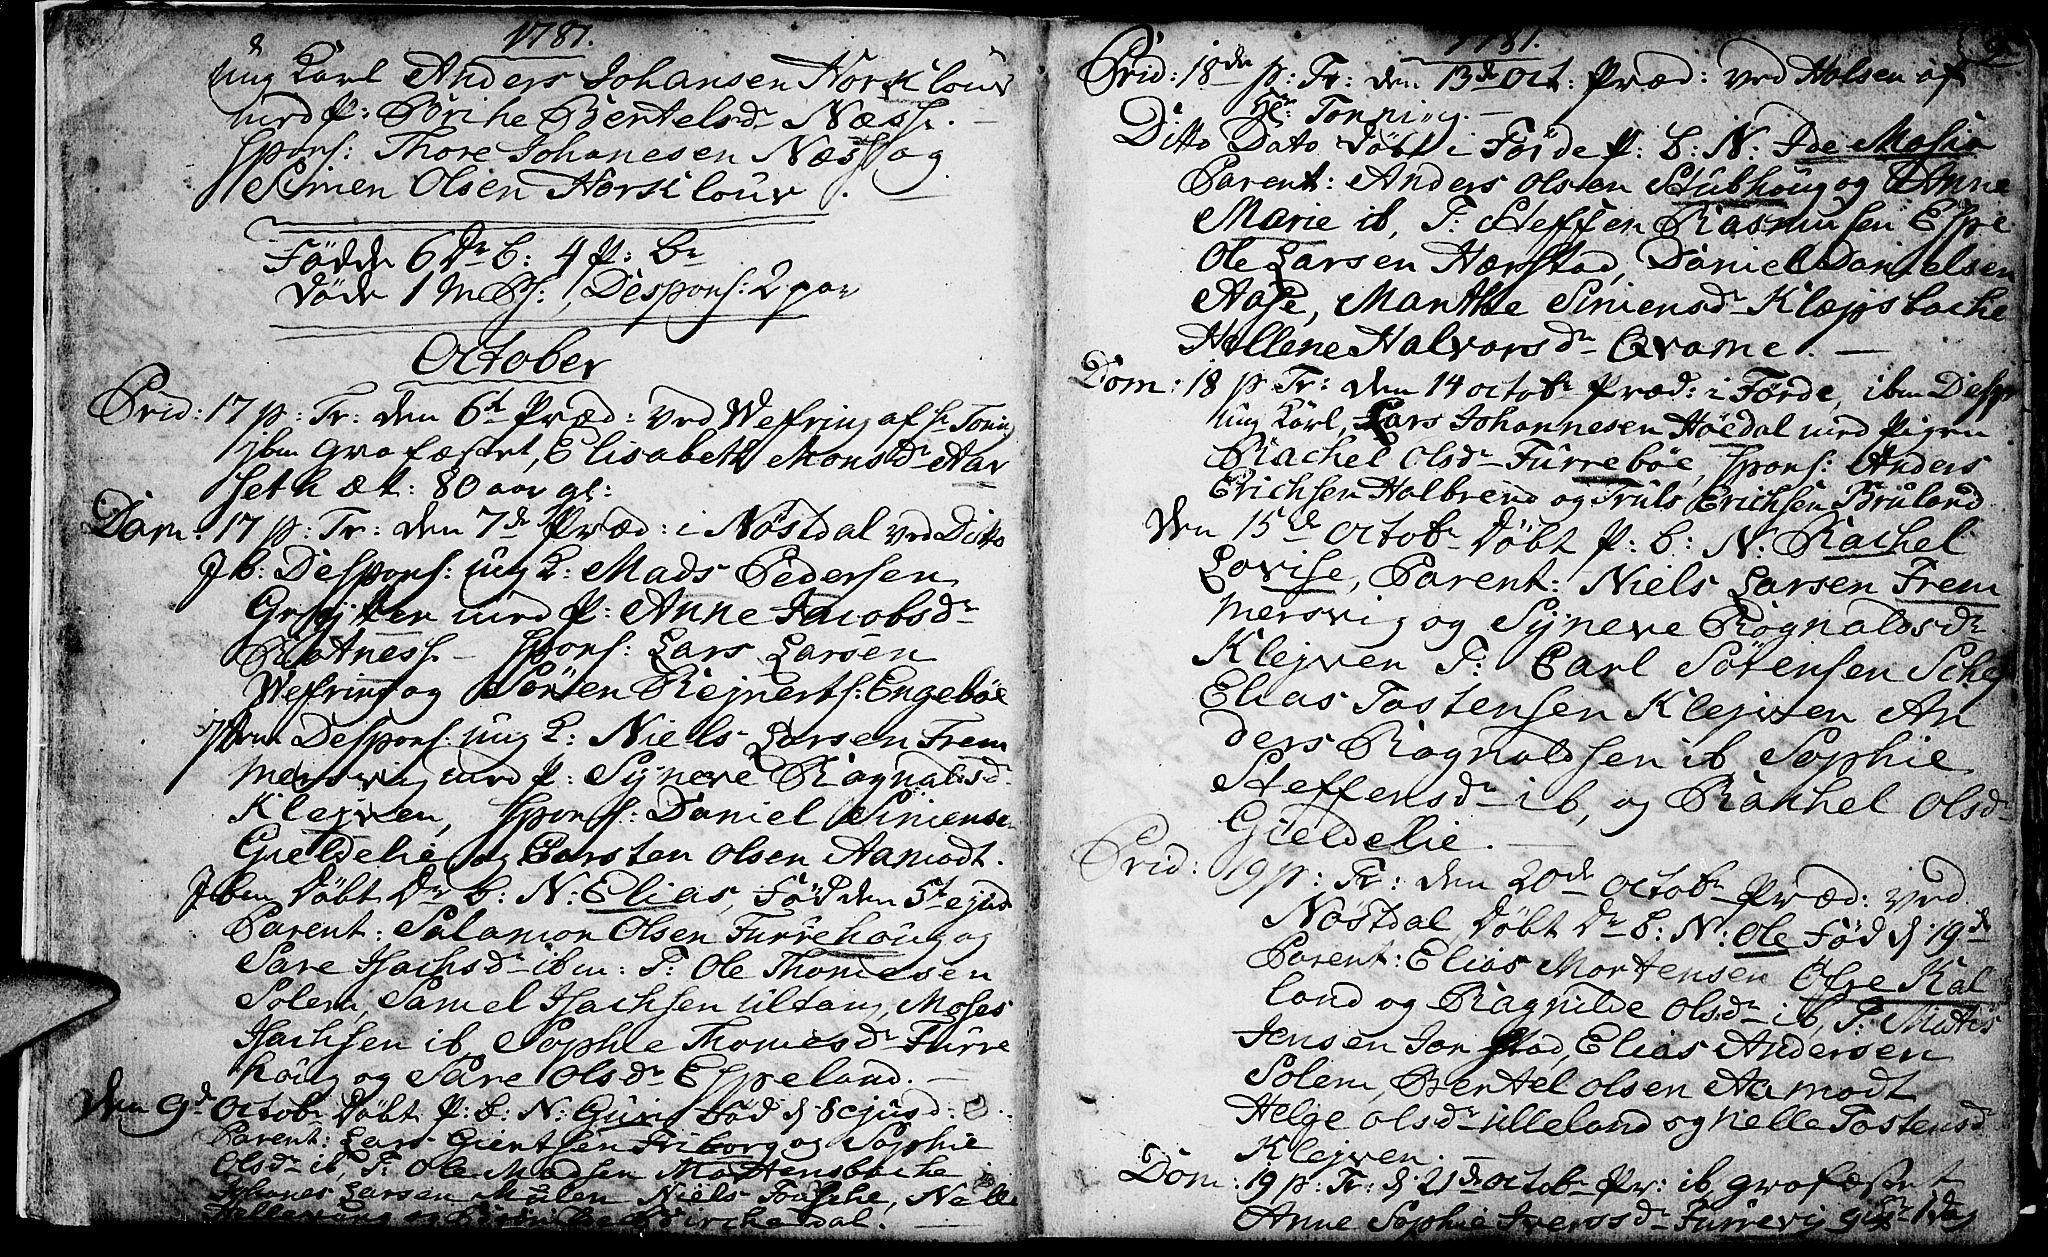 1781.
ung Karl Anders Johansen Norsklouv
med P: Börthe Bentelsdr Næss. —
spons: Thore Johanesen Næss og
Simen Olsen Horsklouv.
Födde 6 Dr b: 4 P: Br
Döde 1 M Ps: Despons: 2 par
October
Prid: 17 p: Tr: den 6te Præd: ved Wefring af Hr Toning
ibm grafæstet, Elisabeth Monsdr Aar
seth æt: 80 aar gl:
Dom: 17 p: Tr: den 7de Præd: i Nöstdal ved Ditto
Ib: Despons: ung K: Mads Pedersen
med P: Anne Jacobsdr
Ratness. — spons: Lars Larsen
Wefring og Sören Rejnerts: Engeböe
Ibm Despons: ung K: Niels Larsen Frem
mersvig med P: Syneve Ragnaldsd
Klejven, spons: Daniel Simense
Gieldelie og Carsten Olsen Aamodt.
Ibm Döbt Dr b: N: Elias, Föd den 5te ejusd
Parent: Salamon Olsen Furrehoug og
Sare Isachsdr ibm: T: Ole Thomesen
Solem, Samel Isachsen Ultang, Moses
Isachsen ib Sophie Thomesdr Furre
houg og Sare Olsdr Espeland. —
Den 9d Octobr Döbt P: b: N: Guri Föd d 8 ejusd:
Parent: Lars Giertsen Friborg og Sophie
Olsdr ib, T: Ole Madsen Mortensbache
Johanes Larsen Mulen Niels, Nille
Hellevang og Kirchedal. —
1781.
Prid: 18de p: Tr: den 13de Oct: Præd: ved Holsen af
Hr: Tonning. —
Ditto Dato Döbt i Förde P: b: N: Ide Maria
Parent: Anders Olsen Stubhoug og Anne
Marie ib, T: Steffen Rasmusen Espe
Ole Larsen Hærstad, Daniel Danielsen
Aase, Marthe Simensdr Klæpsbache
Hellene Halvorsdr Qvame. —
Dom: 18 p: Tr: den 14 octobr Præd: i Förde, ibm Despo
ung Karl, Lars Johannesen Höedal med Pigen
Rachel Olsdr Furreböe, spons: Anders
Erichsen Halbrend og Truls Erichsen Bruland
Den 15de Octobr Döbt P: b: N: Rachel
Lovise, Parent: Niels Larsen Frem
mersvig og Syneve Rognaldsdr
Klejven T: Carl Sörensen Schej
Elias Tostensen Klejven An
ders Rognaldsen ib Sophie
Steffensdr ib, og Rachel Olsd
Gieldelie. —
Prid: 19 p: Tr: den 20de Octobr Præd: ved
Nöstdal Döbt Dr b: N: Ole Föd d: 19de
Parent: Elias Mortensen Öfre Kal
land og Ragnilde Olsdr ib, T: Matis
Jensen Jonstad, Elias Andersen
Solem, Bertel Olsen Aamodt
Helge Olsdr ulleland og Nelle Tostensd
Klejven. —
Dom: 19 p: Tr: d: 21de Octobr Pr: ib grafæstet
Anne Sophie Iversdr Furrevig 1 dag